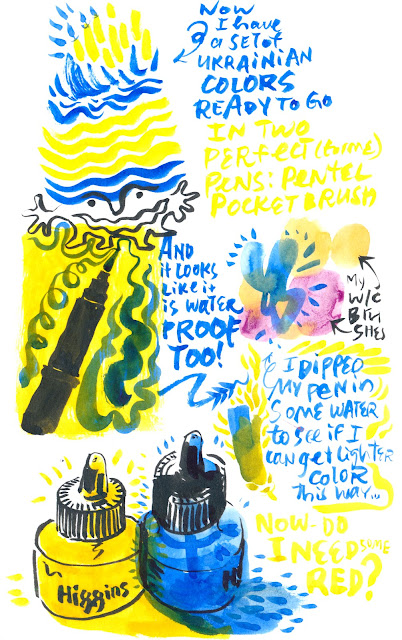 Now
I have
a SET of
UKRAINIAN
COLORS
READY TO GO
IN TWO
PERfect (for me)
PENS: PENTEL
POCKET BRUSH
AND
it looks
like it
is WATER
PROOF
TOO!
My
W/C
BRU
SHES
I DIPPED
MY PEN in
SOME WATER
to SEE if I
can get lighter
COLOR
This way...
NOW - DO
I NEED SOME
RED?
Higgins
H